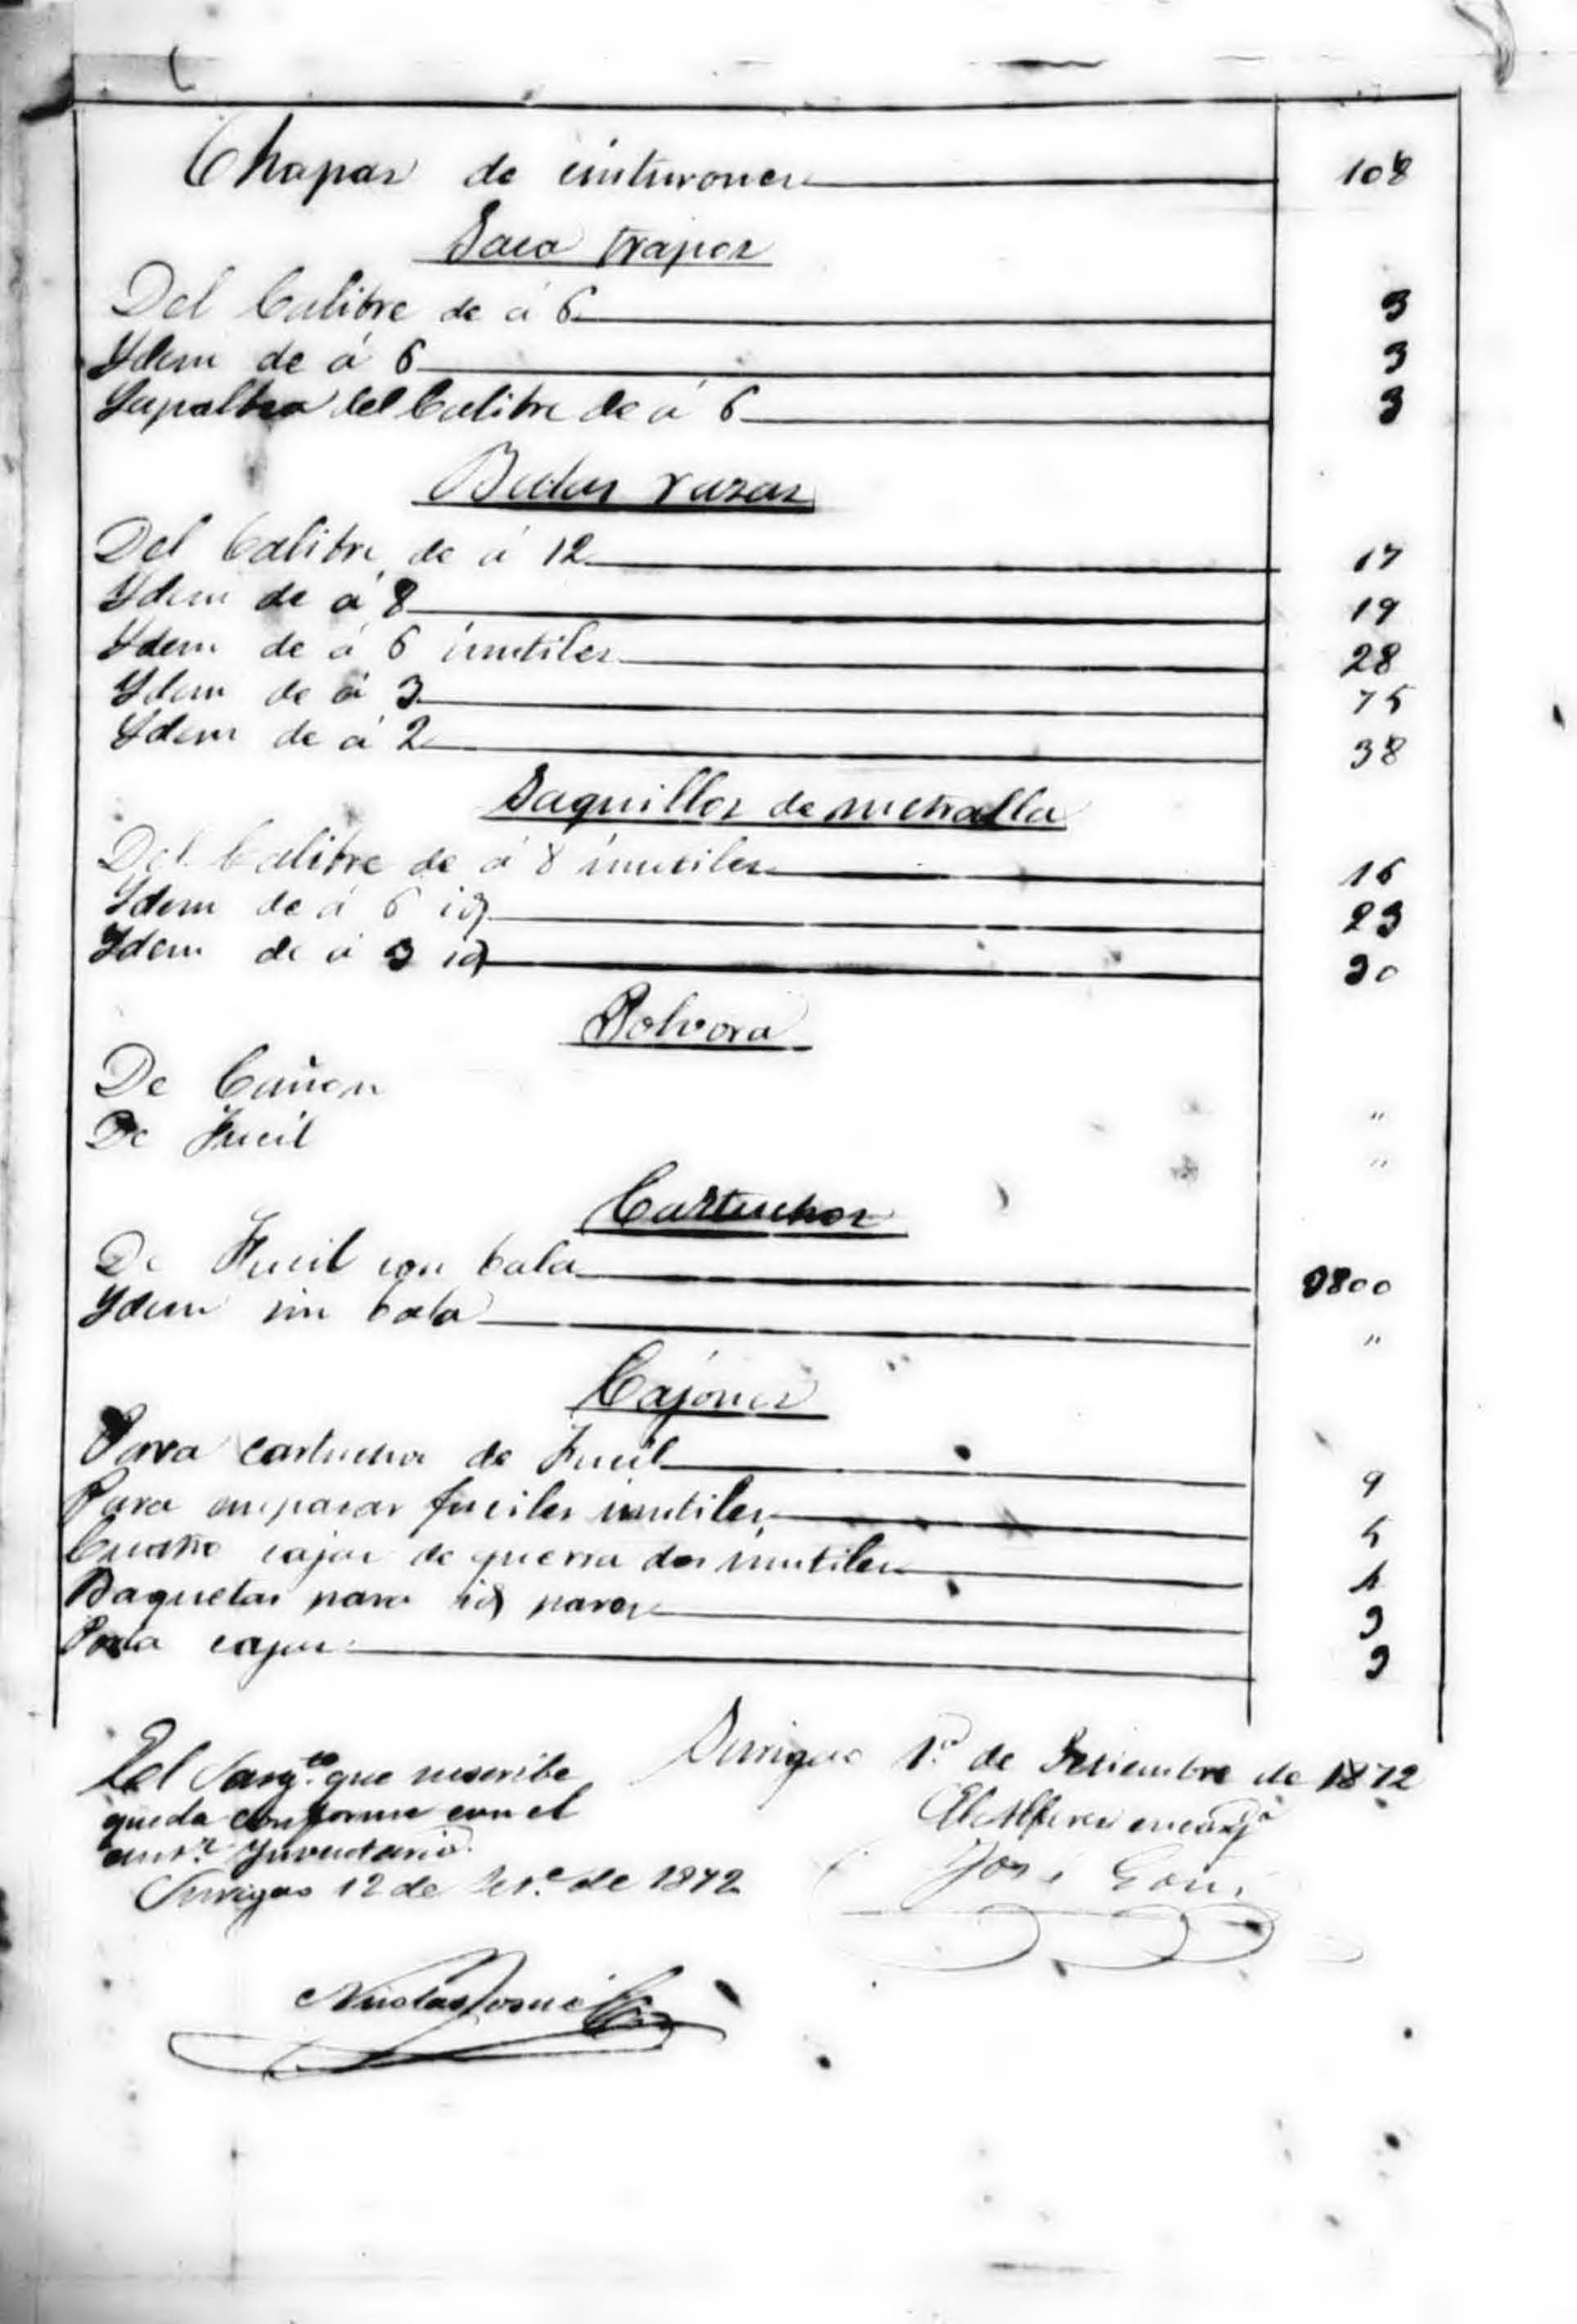 Chapas de cinturones 108
Saca trapos
Del Calibre de á 6 3
Ydem de á 6 3
del Calibre de á 6 3
Balas razas
Del Calibre de á 12 17
Ydem de á 8 19
Ydem de á 6 inutiles 28
Ydem de á 3 75
Ydem de á 2 38
Saquillos de metralla
Del Calibre de á 8 inutiles 16
Ydem de á 6 id 23
Ydem de á 3 id 30
Polvora
De Cañon "
De Fucil "
Cartuchos
De Fucil con bala 3800
Ydem sin bala "
Cajones
Para cartuchos de Fucil 9
Para empacar fuciles inutiles 5
Cuatro cajas de guerra dos inutiles 4
Baquetas para id pares 3
Porta cajas 3
Surigao 1.º de Setiembre de 1872
El Alferez encarg.º
José Goñi
El Sarg.to que suscribe
queda conforme con el
ant.r Ynventario.
Surigao 12 de Set.e de 1872
Nicolas